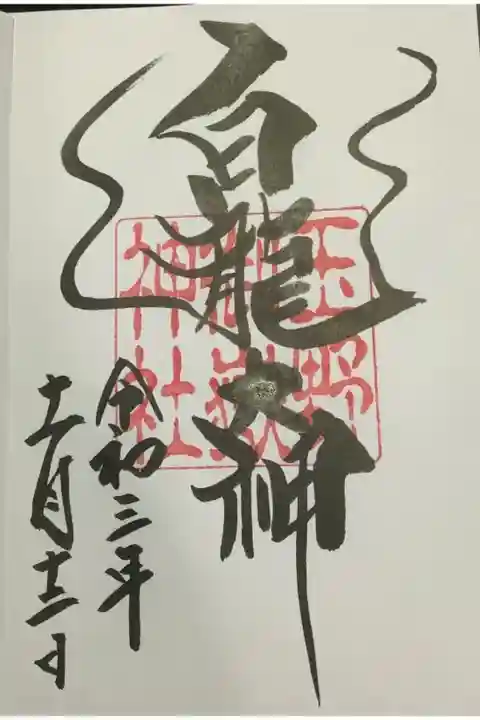 白龍大神
玉野
御嶽
神社
令和三年
十一月十二日